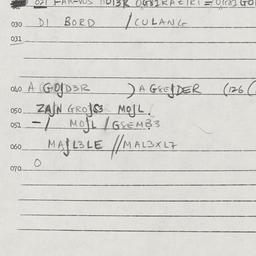 030 DI BORD /CULANG
031
040 A GOJD3R ) A GSEJDER (126
050 ZAJN GROJS3 MOJL.
051 -/ MOJL / GSEMB3
060 MAJL3LE //MAL3XL7
070 O